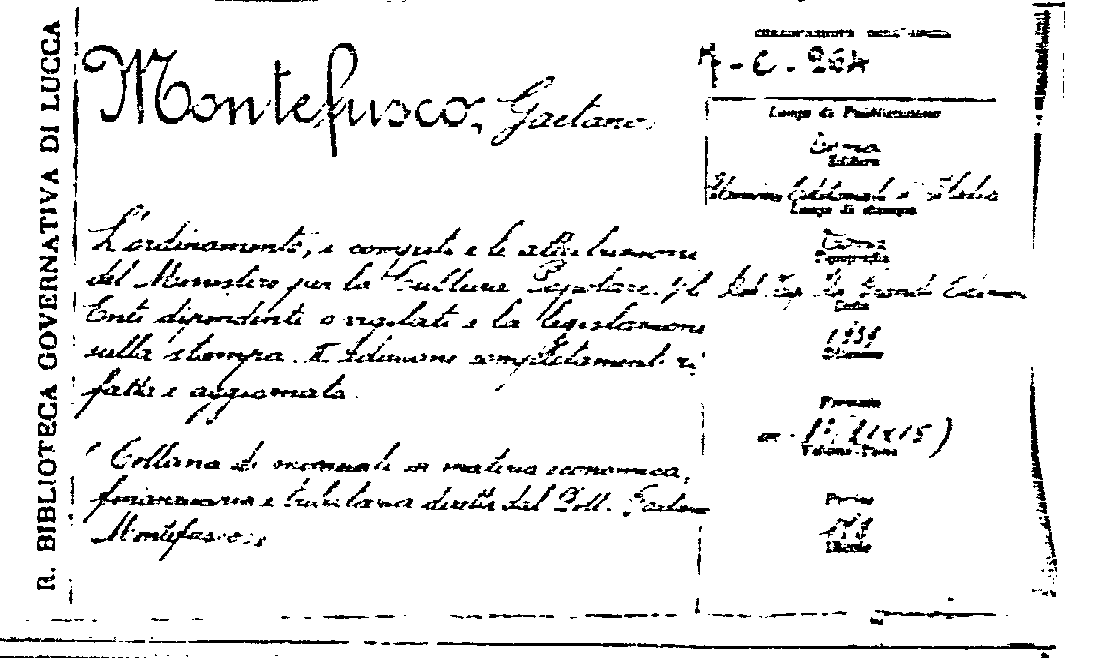 R. BIBLIOTECA GOVERNATIVA DI LUCCA
Montefusco, Gaetano
L'ordinamento, i compiti e le attribuzioni
del Ministero per la Cultura Popolare, gli
Enti dipendenti o vigilati e la legislazione
sulla stampa. II edizione completamente ri
fatta e aggiornata.
Collana di manuali in materia economica,
finanziaria e tributaria diretta dal Dott. Gaetano
Montefusco
Luogo di Pubblicazione
Roma
Editore
Luogo di stampa
Roma
Tipografia
Data
1939
Formato
Volume-Tomo
Pagine